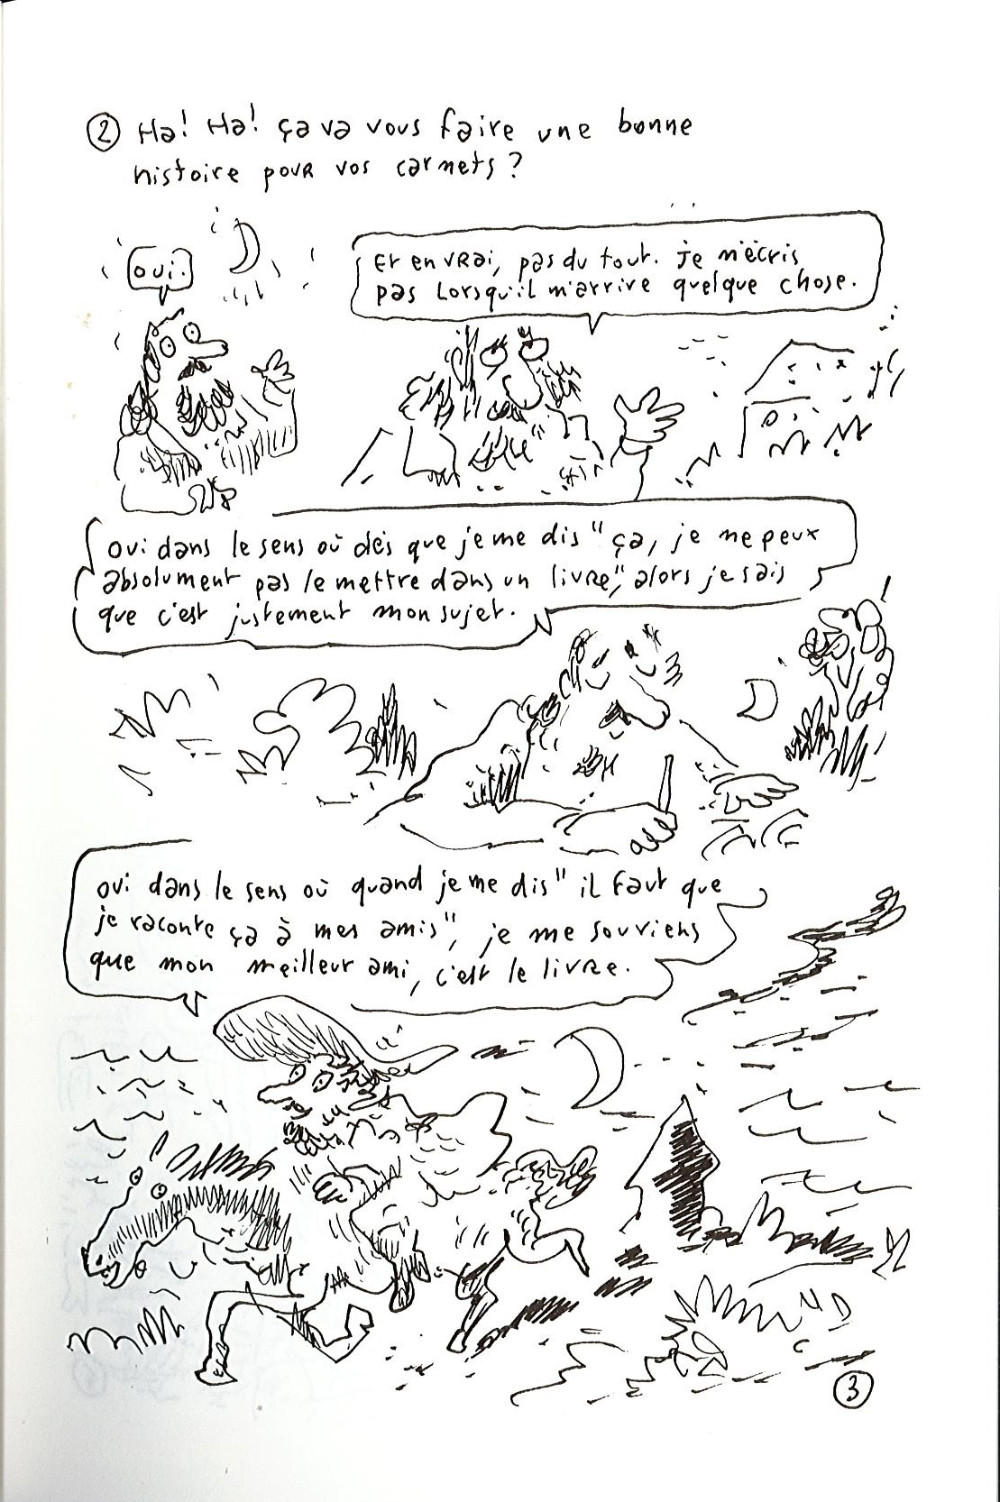 ② Ha! Ha! ça va vous faire une bonne
histoire pour vos carnets?
oui.
Et en vrai, pas du tout. je n'écris
pas lorsqu'il m'arrive quelque chose.
oui dans le sens où dès que je me dis "ça, je ne peux
absolument pas le mettre dans un livre", alors je sais
que c'est justement mon sujet.
oui dans le sens où quand je me dis "il faut que
je raconte ça à mes amis", je me souviens
que mon meilleur ami, c'est le livre.
③